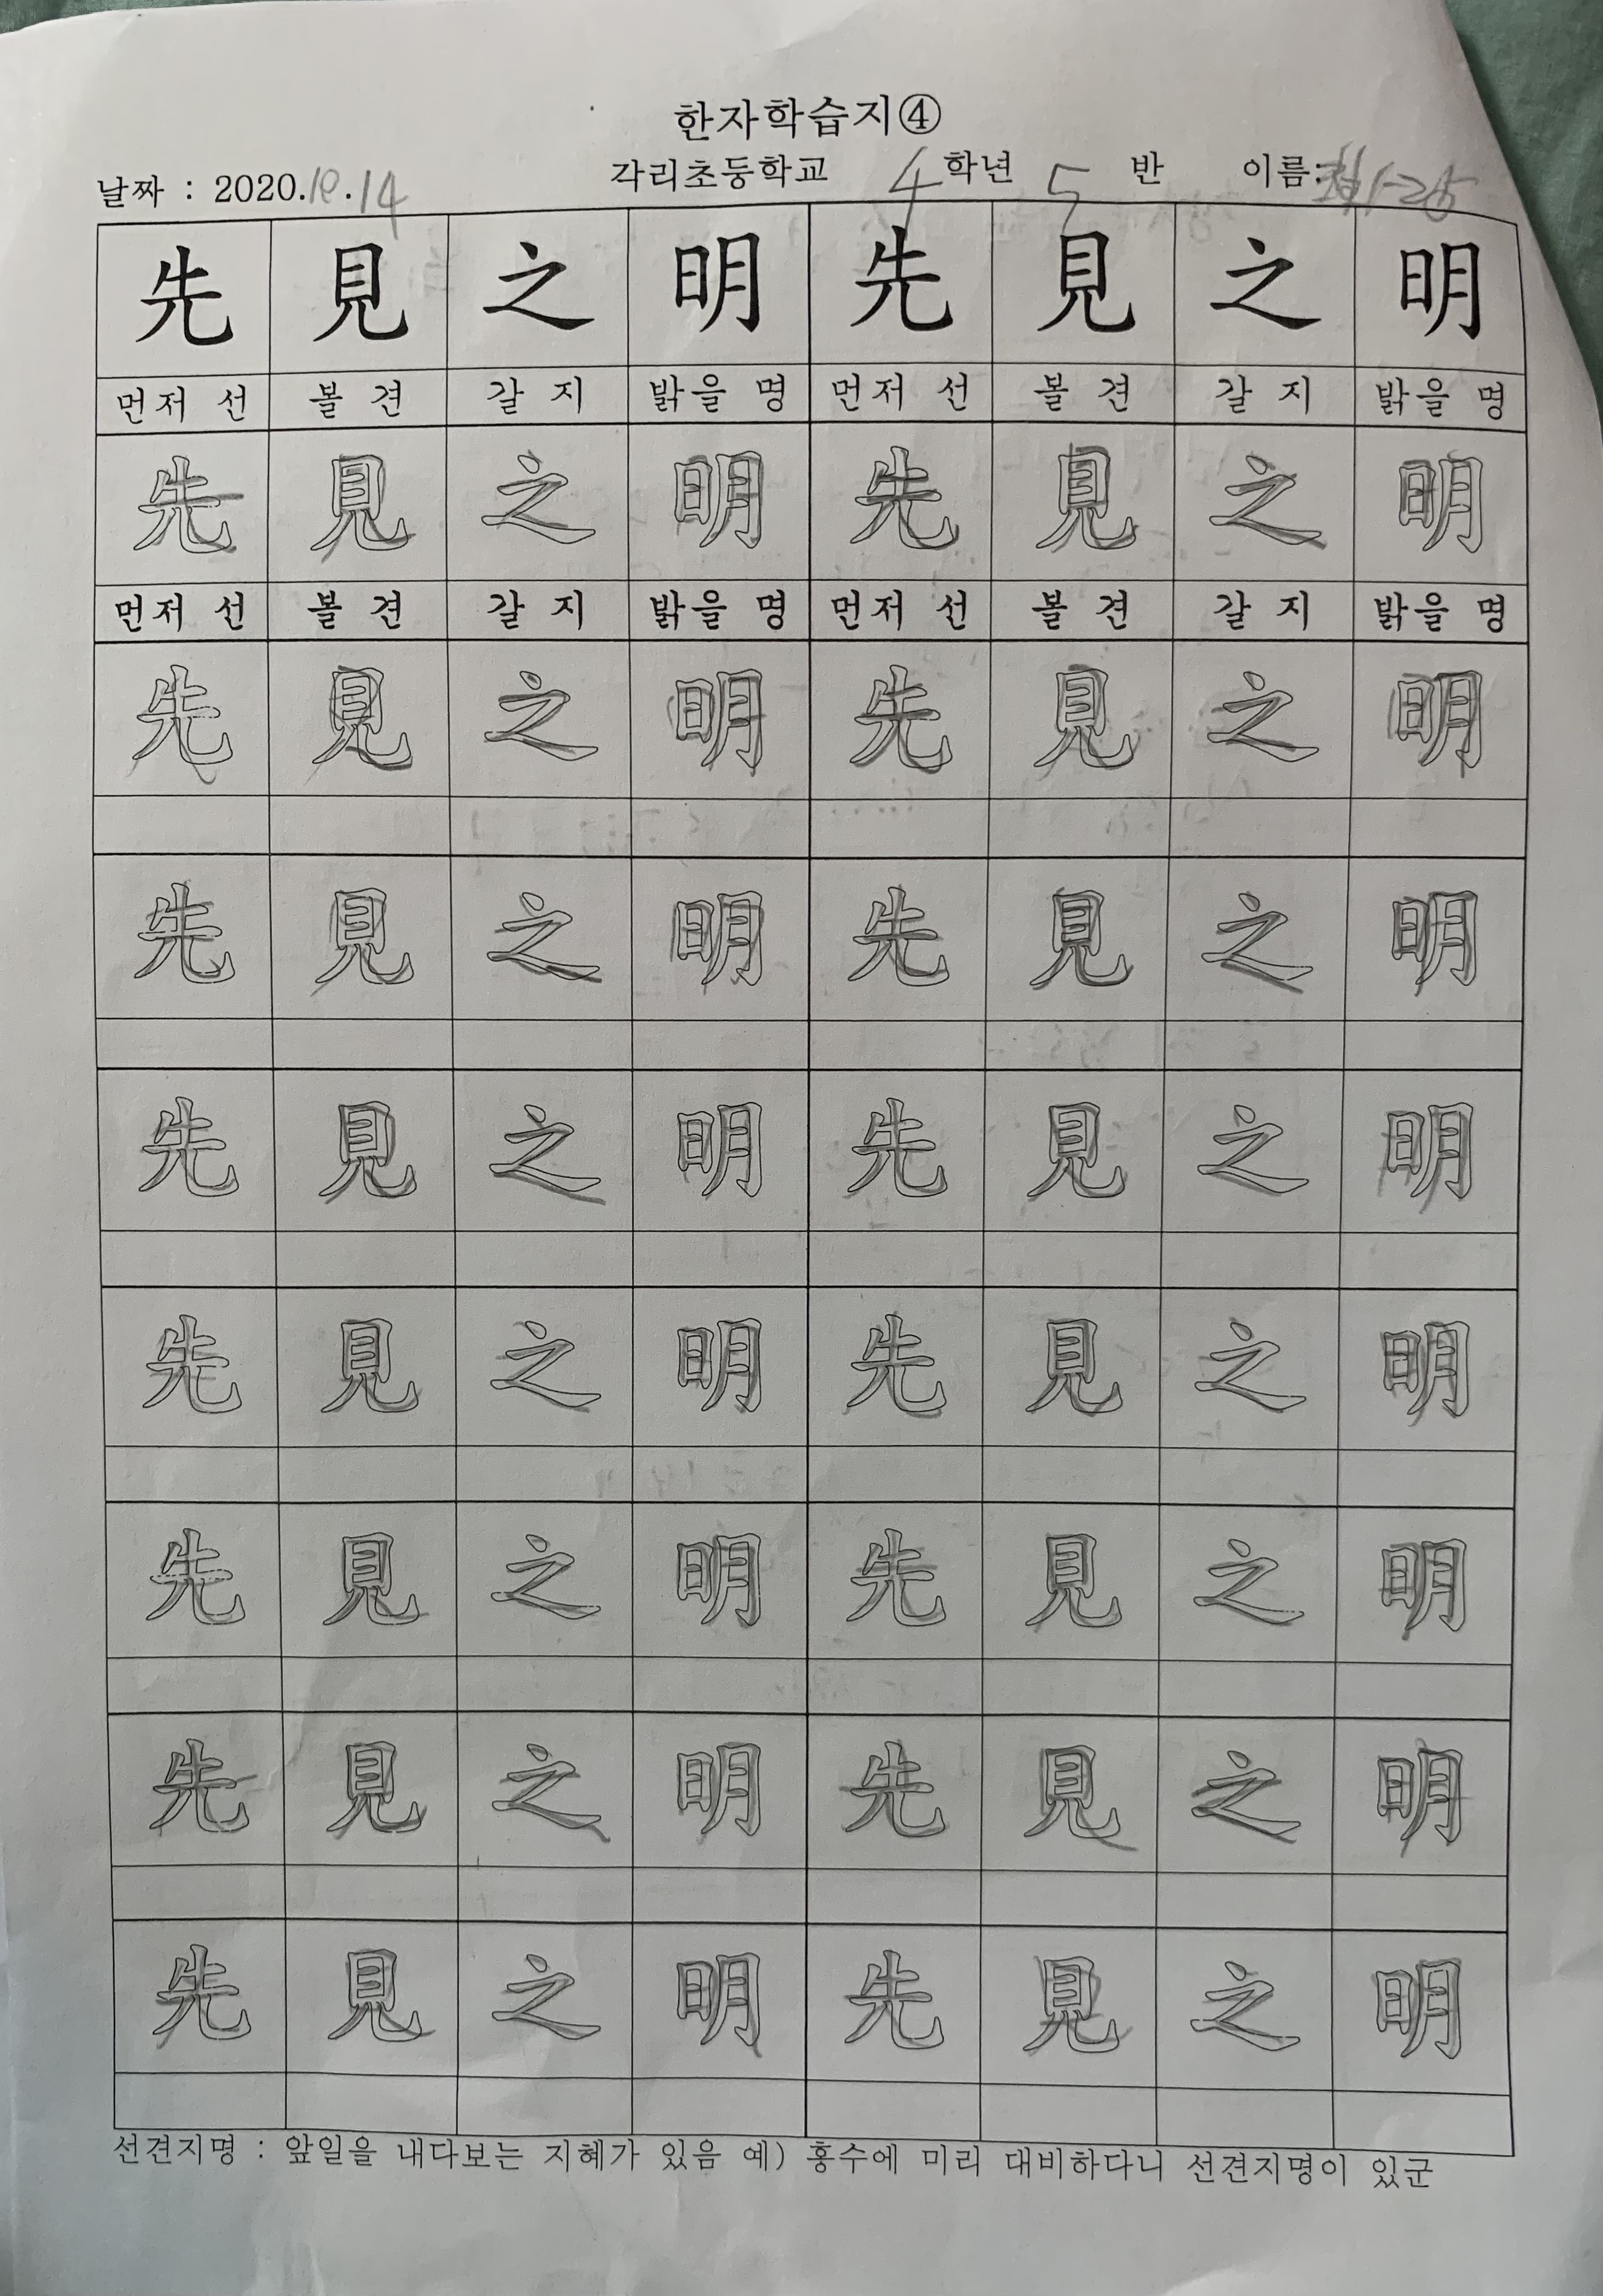 한자학습지④
각리초등학교 4 학년 5 반 이름:
날짜 : 2020.10.14
先 見 之 明 先 見 之 明
먼저 선 볼 견 갈 지 밝을 명 먼저 선 볼 견 갈 지 밝을 명
先 見 之 明 先 見 之 明
먼저 선 볼 견 갈 지 밝을 명 먼저 선 볼 견 갈 지 밝을 명
先 見 之 明 先 見 之 明
先 見 之 明 先 見 之 明
先 見 之 明 先 見 之 明
先 見 之 明 先 見 之 明
先 見 之 明 先 見 之 明
先 見 之 明 先 見 之 明
先 見 之 明 先 見 之 明
선견지명 : 앞일을 내다보는 지혜가 있음 예) 홍수에 미리 대비하다니 선견지명이 있군